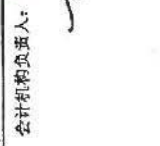 会计机构负责人: